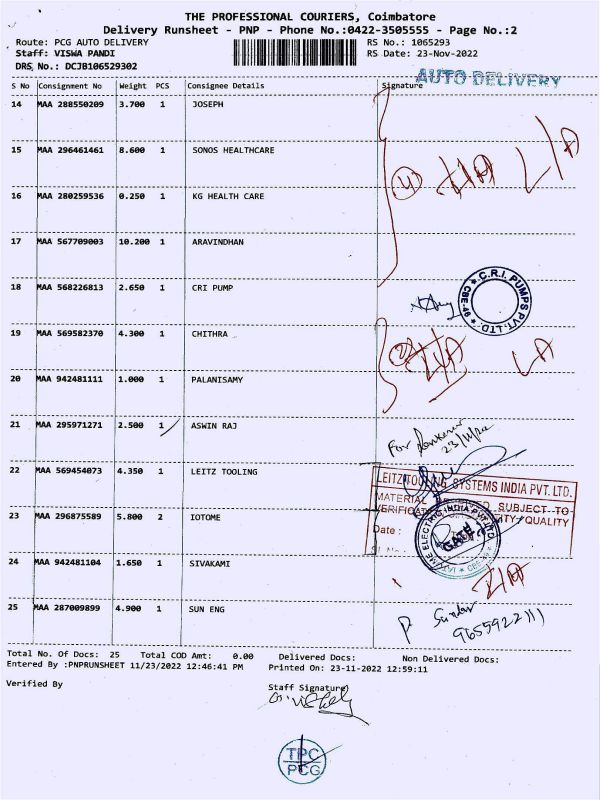 THE PROFESSIONAL COURIERS, Coimbatore
Delivery Runsheet - PNP - Phone No.:0422-3505555 - Page No.:2
Route: PCG AUTO DELIVERY
RS No.: 1065293
Staff: VISWA PANDI
RS Date: 23-Nov-2022
DRS No.: DCJB106529302
AUTO DELIVERY
S No Consignment No Weight PCS Consignee Details Signature
14 MAA 288550209 3.700 1 JOSEPH
15 MAA 296461461 8.600 1 SONOS HEALTHCARE
16 MAA 280259536 0.250 1 KG HEALTH CARE
17 MAA 567709003 10.200 1 ARAVINDHAN
18 MAA 568226813 2.650 1 CRI PUMP
C.R.I. PUMPS PVT. LTD. CBE-49
19 MAA 569582370 4.300 1 CHITHRA
20 MAA 942481111 1.000 1 PALANISAMY
21 MAA 295971271 2.500 1 ASWIN RAJ
For
23/11/22
22 MAA 569454073 4.350 1 LEITZ TOOLING
LEITZ TOOLING SYSTEMS INDIA PVT. LTD.
MATERIAL SUBJECT TO
QUALITY
Date :
GATE
23 MAA 296875589 5.800 2 IOTOME
24 MAA 942481104 1.650 1 SIVAKAMI
25 MAA 287009899 4.900 1 SUN ENG
Total No. Of Docs: 25 Total COD Amt: 0.00 Delivered Docs: Non Delivered Docs:
Entered By :PNPRUNSHEET 11/23/2022 12:46:41 PM Printed On: 23-11-2022 12:59:11
Verified By
Staff Signature
TPC
PCG